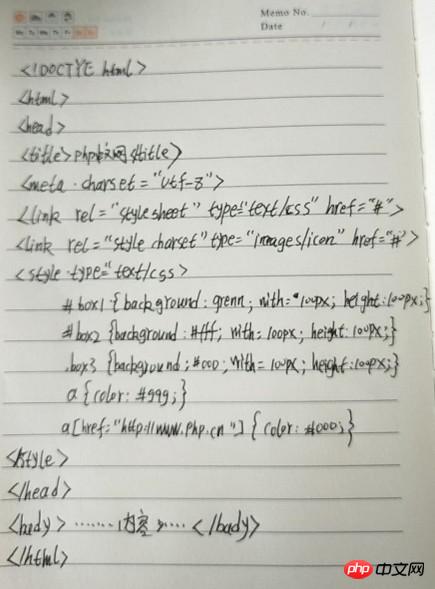 Memo No.
Date / /
Mo Tu We Th Fr Sa Su
<!DOCTYE html>
<html>
<head>
<title>php中文网</title>
<meta charset="utf-8">
<link rel="stylesheet" type="text/css" href="#">
<link rel="style charset" type="images/icon" href="#">
<style type="text/css>
#box1 {background: grenn; with: 100px; height: 100px;}
#box2 {background: #fff; with: 100px; height: 100px;}
.box3 {background: #000; with: 100px; height: 100px;}
a {color: #999;}
a[href="http://www.php.cn"] { color: #000;}
</style>
</head>
<body> ……内容…… </body>
</html>
php 中文网